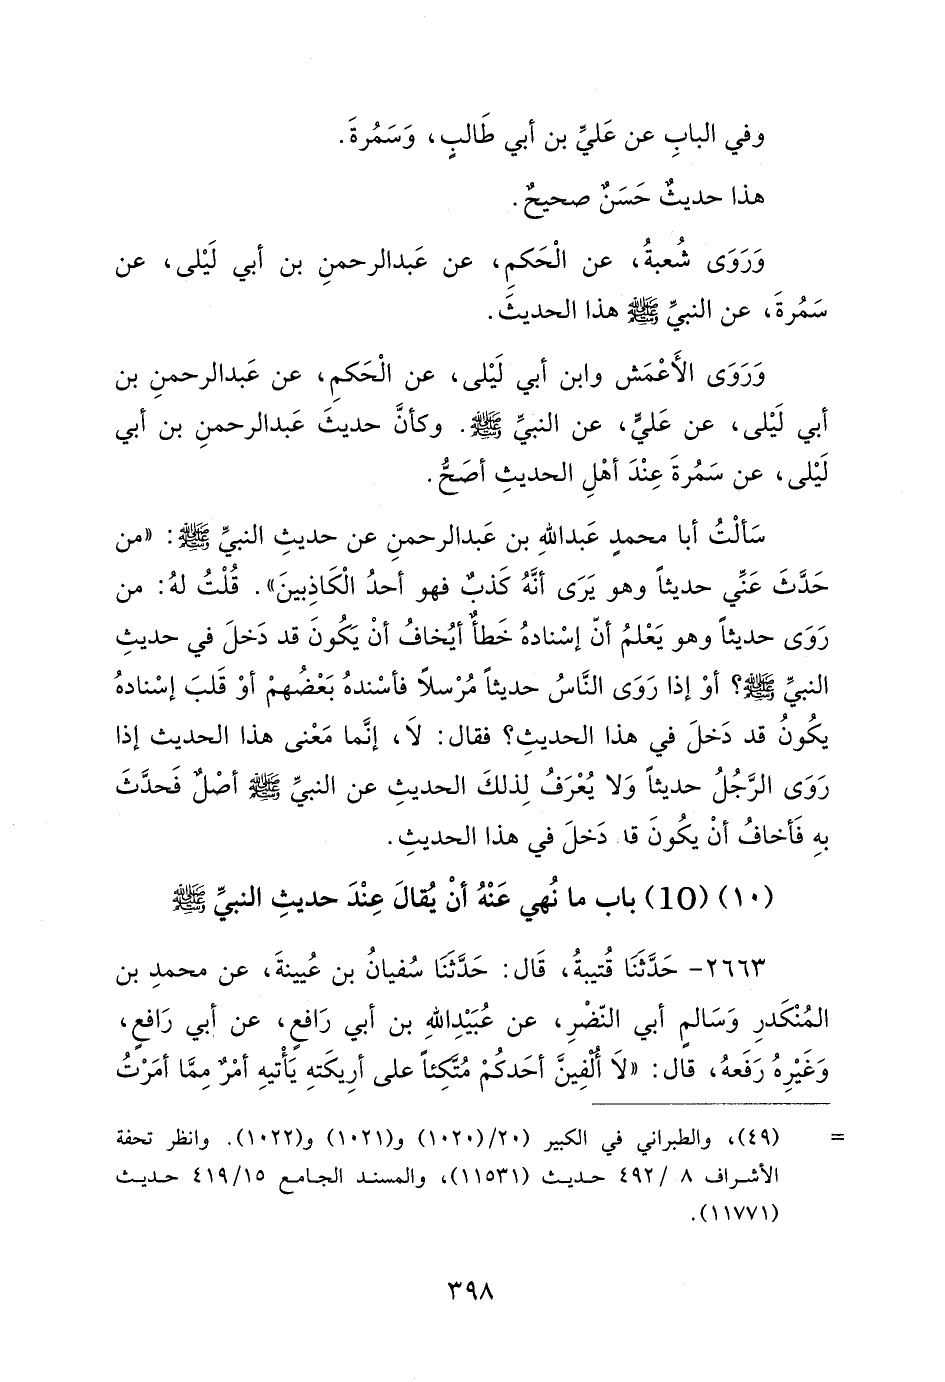 وفي البابِ عن عَليِّ بن أبي طَالبٍ، وَسَمُرةَ.
هذا حديثٌ حَسَنٌ صحيحٌ.
وَرَوَى شُعبةُ، عن الْحَكمِ، عن عَبدالرحمنِ بن أبي لَيْلى، عن
سَمُرةَ، عن النبيِّ ﷺ هذا الحديثَ.
وَرَوَى الأَعْمَش وابن أبي لَيْلى، عن الْحَكمِ، عن عَبدالرحمنِ بن
أبي لَيْلى، عن عَليٍّ، عن النبيِّ ﷺ. وكأنَّ حديثَ عَبدالرحمنِ بن أبي
لَيْلى، عن سَمُرةَ عِنْدَ أهْلِ الحديثِ أصَحُّ.
سَألْتُ أبا محمدٍ عَبداللهِ بن عَبدالرحمنِ عن حديثِ النبيِّ ﷺ: «من
حَدَّثَ عَنِّي حديثاً وهو يَرَى أنَّهُ كَذبٌ فهو أحدُ الْكَاذِبينَ». قُلْتُ لهُ: من
رَوَى حديثاً وهو يَعْلمُ أنّ إسْنادهُ خَطأٌ أيُخافُ أنْ يَكُونَ قد دَخلَ في حديثِ
النبيِّ ﷺ؟ أوْ إذا رَوَى النَّاسُ حديثاً مُرْسلاً فأسْندهُ بَعْضُهمْ أوْ قَلبَ إسْنادهُ
يكُونُ قد دَخلَ في هذا الحديثِ؟ فقال: لاَ، إنَّما مَعْنى هذا الحديث إذا
رَوَى الرَّجُلُ حديثاً وَلا يُعْرَفُ لِذلكَ الحديثِ عن النبيِّ ﷺ أصْلٌ فَحدَّثَ
بهِ فَأخافُ أنْ يكُونَ قد دَخلَ في هذا الحديثِ.
(١٠) (10) باب ما نُهي عَنْهُ أنْ يُقالَ عِنْدَ حديثِ النبيِّ ﷺ
٢٦٦٣- حَدَّثَنَا قُتيبةُ، قَال: حَدَّثَنَا سُفيانُ بن عُيينةَ، عن محمدِ بن
المُنْكَدرِ وَسَالمٍ أبي النّضْرِ، عن عُبَيْدِاللهِ بن أبي رَافعٍ، عن أبي رَافعٍ،
وَغَيْرِهُ رَفَعهُ، قال: «لاَ أُلْفِينَّ أحَدكُمْ مُتَّكِئاً على أرِيكَتهِ يَأْتيهِ أمْرٌ مِمَّا أمَرْتُ
= (٤٩)، والطبراني في الكبير (٢٠/(١٠٢٠) و(١٠٢١) و(١٠٢٢). وانظر تحفة
الأشراف ٨ /٤٩٢ حديث (١١٥٣١)، والمسند الجامع ٤١٩/١٥ حديث
(١١٧٧١).
٣٩٨